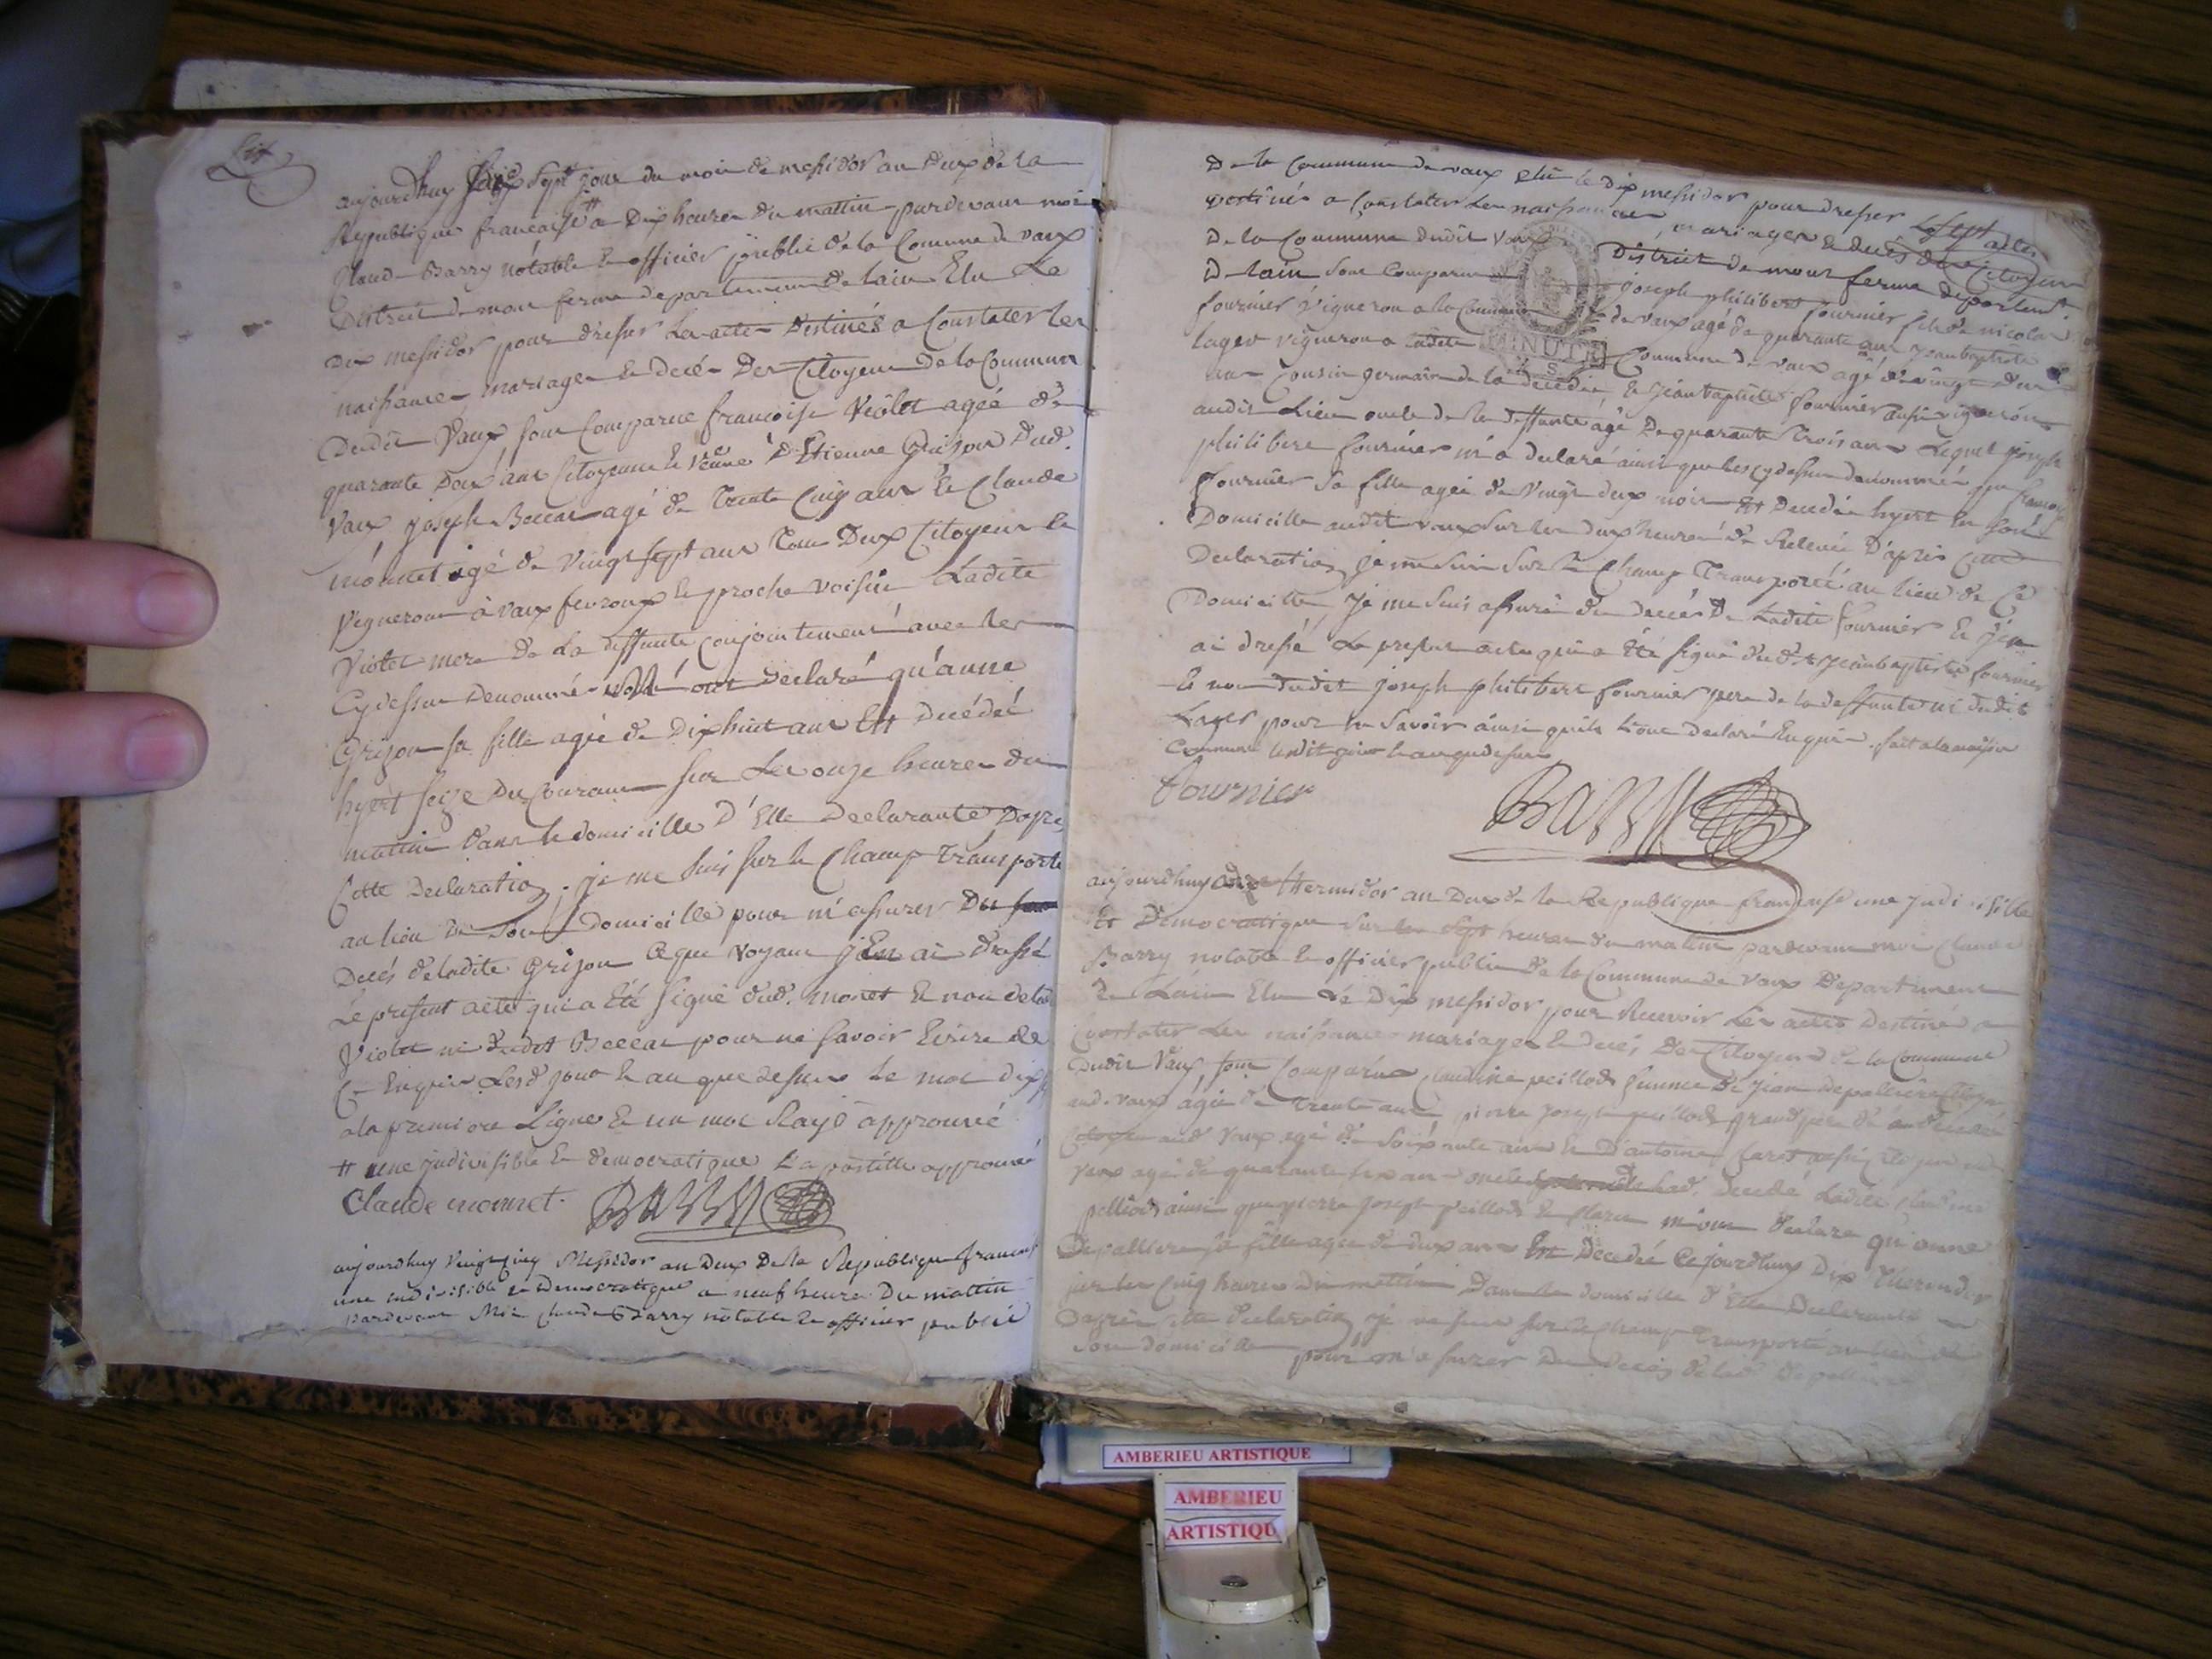 aujourdhuy dix Sept jour du mois de messidor an Deux de la
Republique francaise # a Dix heures du mattin pardevant moi
Claude Barry notable & officier publié de la Comune de vaux
District de mont ferme departement de lain Elu Le
Dix messidor pour dresser Les actes Destinés a Constater les
naissances mariages & decés Des Citoyens de la Commune
Dudit Vaux sont Comparue francoise Violet ageé de
quarante ans Citoyenne & veuve d'Etienne Grison Dud.
Vaux joseph Beccat agé de Trente Cinq ans & Claude
monnet agé de vingt sept ans Tous Deux Citoyens &
vignerons à vaux fevroux & proche voisin Ladite
Violet mere de La deffunte conjointement avec les
Cy dessus Denommés ont declaré qu'anne
Grison sa fille ageé de Dixhuit ans Est Decédeé
hyert seize Du Courant sur Les onze heures du
mattin dans le domicille d'Elle Declarante Dapres
Cette Declaration, je me suis sur le Champ Transporté
au lieu de Son Domicille pour m'assurer Du
Decés de ladite Grison Ce que voyant j'En ai Dressé
Le present acte qui a Eté signé dud. monet & non de lad
Violet ni dudit Beccat pour ne savoir Ecrire de
Ce Enquis Lesd jour & an que dessus le mot dix
a la premiere Ligne & un mot Rayé approuvé
# une indivisible & democratique La postille approuvé
Claude monnet. BARRY
aujourdhuy vingt cinq Messidor an Deux De la Republique francaise
une indivisible & Democratique a neuf heures Du mattin
pardevant Moi Claude Barry notable & officier publié
De la Commune de vaux Elu le dix messidor pour dresser Les actes
destinés a Constater Les naissances, mariages & decés des Citoyens
De la Commune dudit Vaux District de mont ferme departemt.
D lain sont Comparus joseph philibert fournier fils de nicolas
fournier vigneron a la Commune de vaux agé de quarante ans jean baptiste
lager vigneron a ladite Commune de vaux agé de vingt deux
ans Cousin germain de la décedée, & jean baptiste fournier aussi vigneron
audit Lieu oncle de la deffunte agé De quarante Trois ans Lequel joseph
philibert fournier m'a declaré ainsi que les cy dessus denommés que
fournier sa fille ageé de vingt deux mois Est Decedée hyert En son
Domicille audit vaux sur les deux heures de Relevée D'après Cette
Declaration je me suis sur le Champ Transporté au lieu de Ce
Domicille, Je me suis assuré du deccés De Ladite fournier & j'en
ai dressé Le present acte qui a Eté signé dud. jean baptiste fournier
& non dudit joseph philibert fournier pere de la deffunte ni dudit
Lager pour ne savoir ainsi quils l'ont Declaré Enquis. fait a la maison
Commune ledit jour & an que dessus
fournier BARRY
MINUTE
aujourdhuy thermidor an Deux de la Republique francaise une indivisible
Et Democratique sur Les sept heures du mattin pardevant moi Claude
Barry notable & officier publié de la Commune de vaux Departement
de Lain Elu Le Dix messidor pour Recevoir Les actes Destiné a
Constater Les naissances mariages & decés Des Citoyens de la Commune
Dudit Vaux sont Comparus Claudine peillod femme De jean depalliere
aud. vaux ageé de Trente ans, pierre joseph peillod grand pere de
aud vaux agé de Soixante ans & D'antoine
vaux agé de quarante ans oncle decedé Ladite
peillod ainsi que pierre joseph peillod & m'ont declaré qu'anne
Depalliere sa fille ageé de deux ans Est Decedée Cejourdhuy Dix Thermidor
sur Les cinq heures Du mattin Dans le domicille d'Elle Declarante
Daprès cette Declaration je me suis sur le Champ Transporté au lieu de
Son domicille pour m'assurer Du decés de lad Depalliere
AMBERIEU ARTISTIQUE
AMBERIEU
ARTISTIQU